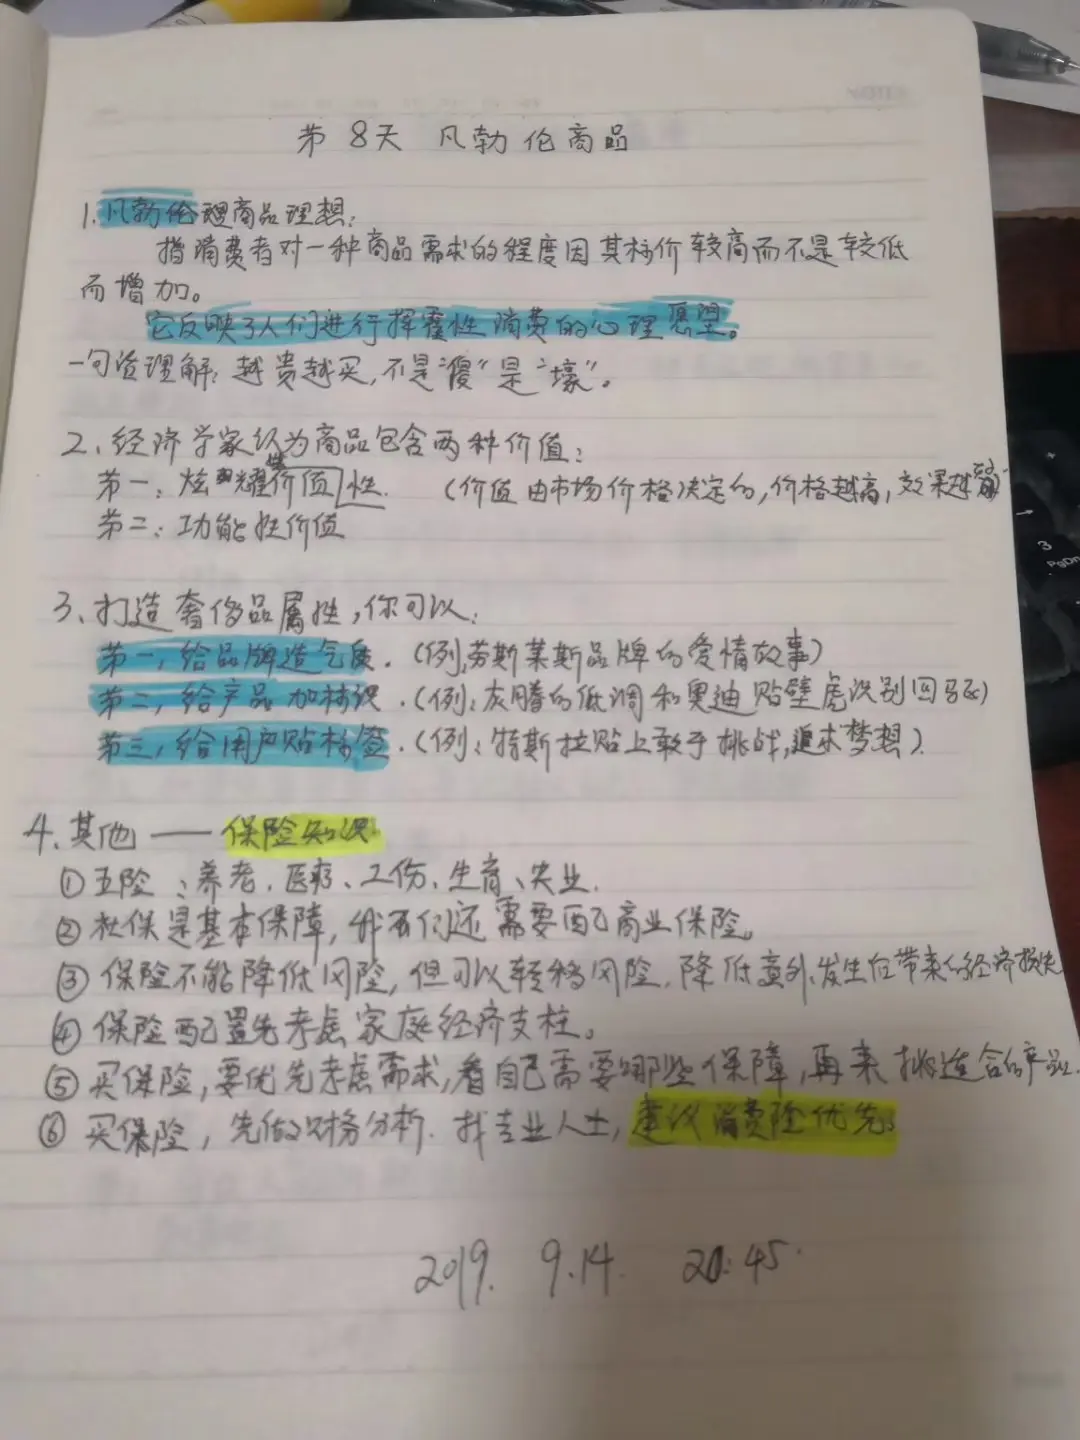 第8天 凡勃伦商品
1.凡勃伦理商品理想：
指消费者对一种商品需求的程度因其标价较高而不是较低
而增加。
它反映了人们进行挥霍性消费的心理愿望。
一句话理解：越贵越买，不是“傻”是“壕”。
2、经济学家认为商品包含两种价值：
第一：炫耀性价值 （价值由市场价格决定的，价格越高，效果越
第二：功能性价值
3、打造奢侈品属性，你可以：
第一，给品牌造气质.（例，劳斯莱斯品牌的爱情故事）
第二，给产品加标识.（例：灰腾的低调和奥迪贴壁虎识别四驱）
第三，给用户贴标签.（例：特斯拉贴上敢于挑战，追求梦想）
4、其他——保险知识
①五险：养老、医疗、工伤、生育、失业.
②社保是基本保障，我们还需要配商业保险。
③保险不能降低风险，但可以转移风险.降低意外发生后带来的经济损失
④保险配置先考虑家庭经济支柱。
⑤买保险，要优先考虑需求，看自己需要哪些保障，再来挑适合的产品.
⑥买保险，先做财务分析.找专业人士，建议消费险优先。
2019. 9.14. 20:45.